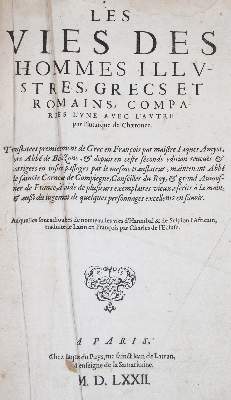 LES
VIES DES
HOMMES ILLV-
STRES, GRECS ET
ROMAINS, COMPA-
REES L'VNE AVEC L'AVTRE
par Plutarque de Chæronee.
Translatees premierement de Grec en François par maistre Iaques Amyot,
Abbé de Bellozane, & depuis en ceste seconde edition reueuës &
corrigees en infinis passages par le mesme translateur, maintenant Abbé
de saincte Corneille de Compiegne, Conseiller du Roy, & grand Aumos-
nier de France, à l'aide de plusieurs exemplaires vieux escrits à la main,
& aussi du iugement de quelques personnages excellents en sçauoir.
les vies d'Hannibal & de Scipion l'Africain,
de Latin en François par Charles de l'Ecluse.
A PARIS,
Chez du Puys, ruë sainct Iean de Latran,
à l'enseigne de la Samaritaine.
M. D. LXXII.